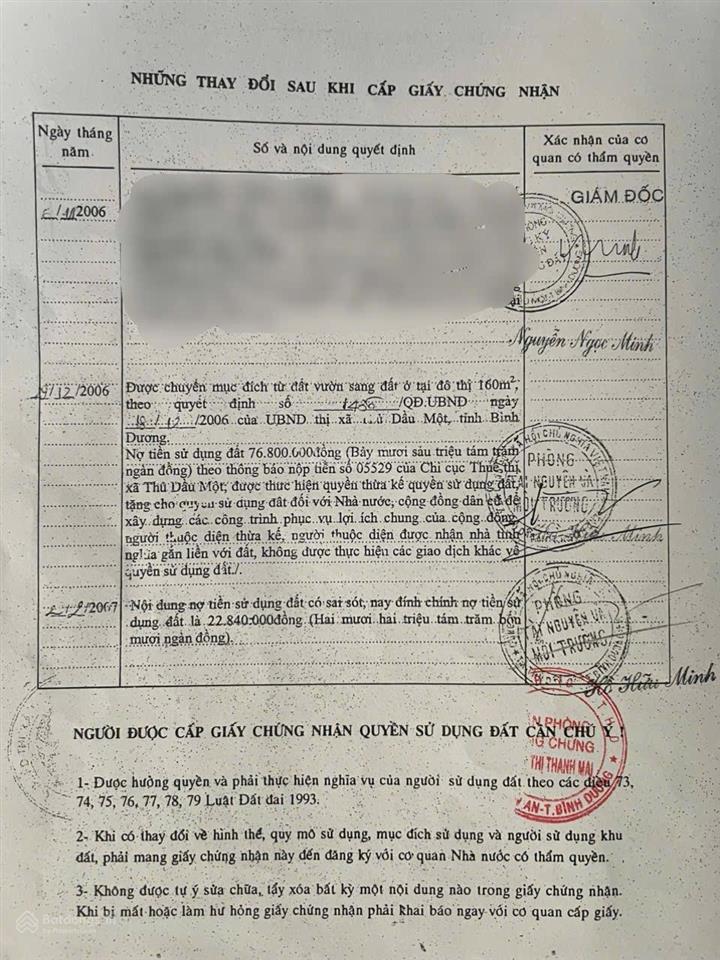 NHỮNG THAY ĐỔI SAU KHI CẤP GIẤY CHỨNG NHẬN
Ngày tháng năm
Số và nội dung quyết định
Xác nhận của cơ quan có thẩm quyền
/2006
GIÁM ĐỐC
Nguyễn Ngọc Minh
/12/2006
Được chuyển mục đích từ đất vườn sang đất ở tại đô thị 160m²,
theo quyết định số /QĐ.UBND ngày
/12/2006 của UBND thị xã Thủ Dầu Một, tỉnh Bình
Dương.
Nợ tiền sử dụng đất 76.800.000đồng (Bảy mươi sáu triệu tám trăm
ngàn đồng) theo thông báo nộp tiền số 05529 của Chi cục Thuế thị
xã Thủ Dầu Một, được thực hiện quyền thừa kế quyền sử dụng đất
tặng cho quyền sử dụng đất đối với Nhà nước, cộng đồng dân cư để
xây dựng các công trình phục vụ lợi ích chung của cộng đồng,
người thuộc diện thừa kế, người thuộc diện được nhận nhà tình
nghĩa gắn liền với đất, không được thực hiện các giao dịch khác về
quyền sử dụng đất./.
PHÒNG
TÀI NGUYÊN VÀ
MÔI TRƯỜNG
/2007
Nội dung nợ tiền sử dụng đất có sai sót, nay đính chính nợ tiền sử
dụng đất là 22.840.000đồng (Hai mươi hai triệu tám trăm bốn
mươi ngàn đồng).
PHÒNG
TÀI NGUYÊN VÀ
MÔI TRƯỜNG
Hồ Hữu Minh
NGƯỜI ĐƯỢC CẤP GIẤY CHỨNG NHẬN QUYỀN SỬ DỤNG ĐẤT CẦN CHÚ Ý !
N PHÒNG
NG CHỨNG
THỊ THANH MAI
AN-T.BÌNH DƯƠNG
1- Được hưởng quyền và phải thực hiện nghĩa vụ của người sử dụng đất theo các điều 73,
74, 75, 76, 77, 78, 79 Luật Đất đai 1993.
2- Khi có thay đổi về hình thể, quy mô sử dụng, mục đích sử dụng và người sử dụng khu
đất, phải mang giấy chứng nhận này đến đăng ký với cơ quan Nhà nước có thẩm quyền.
3- Không được tự ý sửa chữa, tẩy xóa bất kỳ một nội dung nào trong giấy chứng nhận.
Khi bị mất hoặc làm hư hỏng giấy chứng nhận phải khai báo ngay với cơ quan cấp giấy.